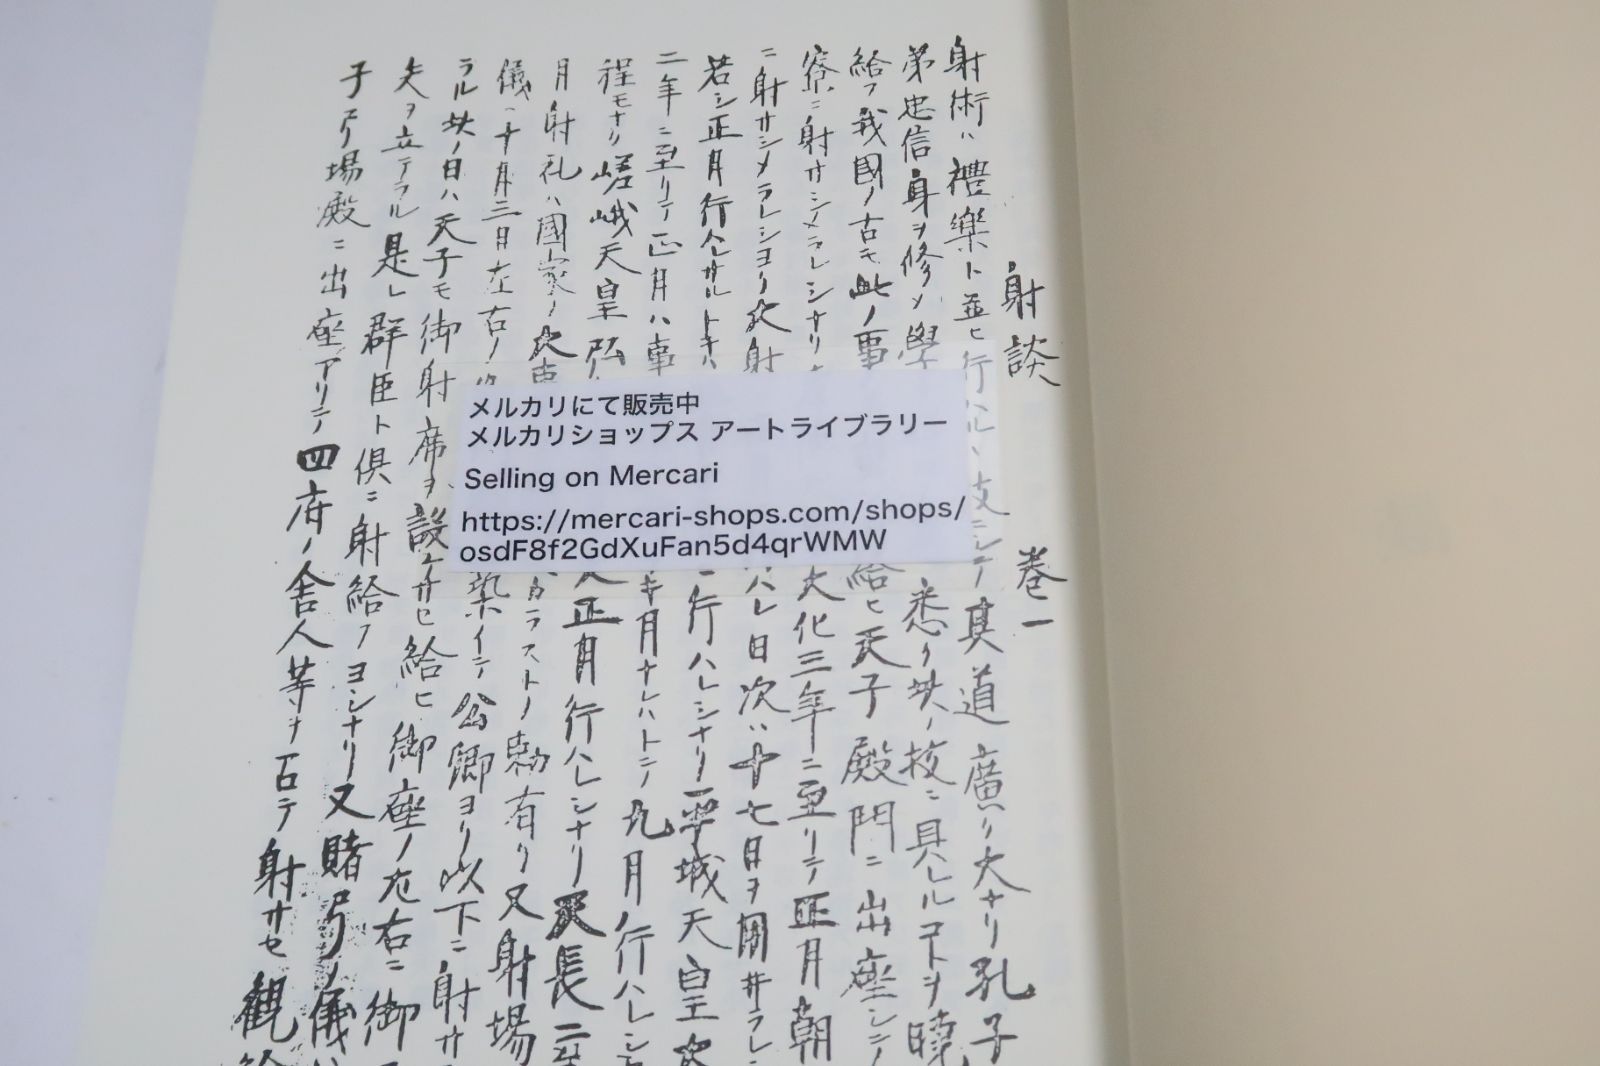 射談 巻一
射術ハ禮樂ト並ヒ行ハルヽ技ニシテ真道廣ク大ナリ孔子
弟忠信身ヲ修メ學 悉ク其ノ技ニ具レルコトヲ暁
給フ我國ノ古モ此ノ事 給ヒ天子殿門ニ出座シテ
寮ニ射サシメラレシナリ 大化三年ニ至リテ正月朝
ニ射サシメラレシヨリ大射 ハレ日次ハ十七日ヲ用井ラレ
若シ正月行ハレサルトキハ ニ行ハレシナリ平城天皇大
二年ニ至リテ正月ハ事 キ月ナレハトテ九月行ハレシ
程モナリ嵯峨天皇弘 正月行ハレシナリ天長二年
月射礼ハ國家ノ大事 カラストノ勅有リ又射場
儀ハ十月三日左右ノ 築イテ公卿ヨリ以下ニ射サ
ラル其ノ日ハ天子モ御射席ヲ設ケサセ給ヒ御座ノ左右ニ御
矢ヲ立テラル是レ群臣ト倶ニ射給フヨシナリ又賭弓ノ儀ハ
子ヨリ場殿ニ出座アリテ四府ノ舎人等ヲ召テ射サセ観給
メルカリにて販売中
メルカリショップス アートライブラリー
Selling on Mercari
https://mercari-shops.com/shops/
osdF8f2GdXuFan5d4qrWMW